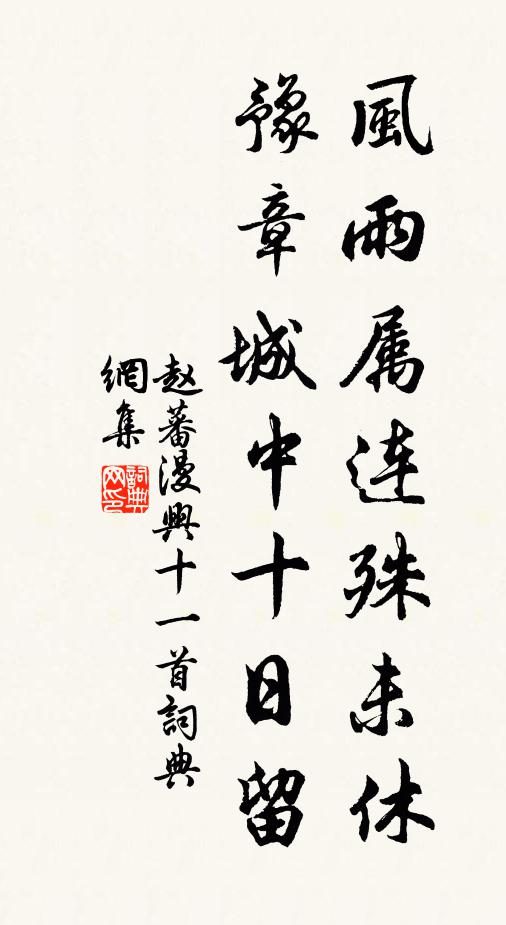 風雨属连殊未休
豫章城中十日留
赵蕃漫興十一首詞典
網集
詞典
网印